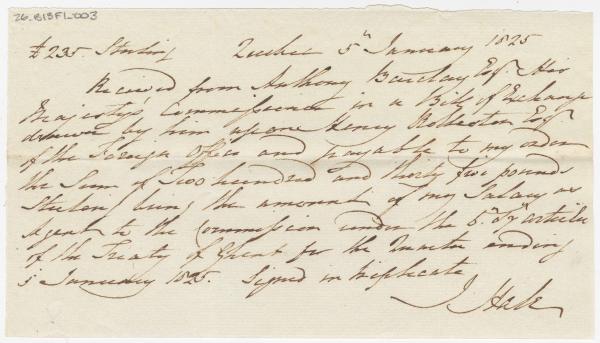 26.B13FL.003
£235. Sterling Quebec 5th January 1825
Received from Anthony Barclay Esqr. His
Majesty's Commissioner in a Bill of Exchange
drawn by him upon Henry Rolleston Esqr.
of the Foreign Office and payable to my order
the Sum of Two hundred and thirty five pounds
Sterling being the amount of my Salary as
Agent to the Commission under the 5th article
of the Treaty of Ghent for the Quarter ending
5 January 1825. Signed in triplicate
J Hale